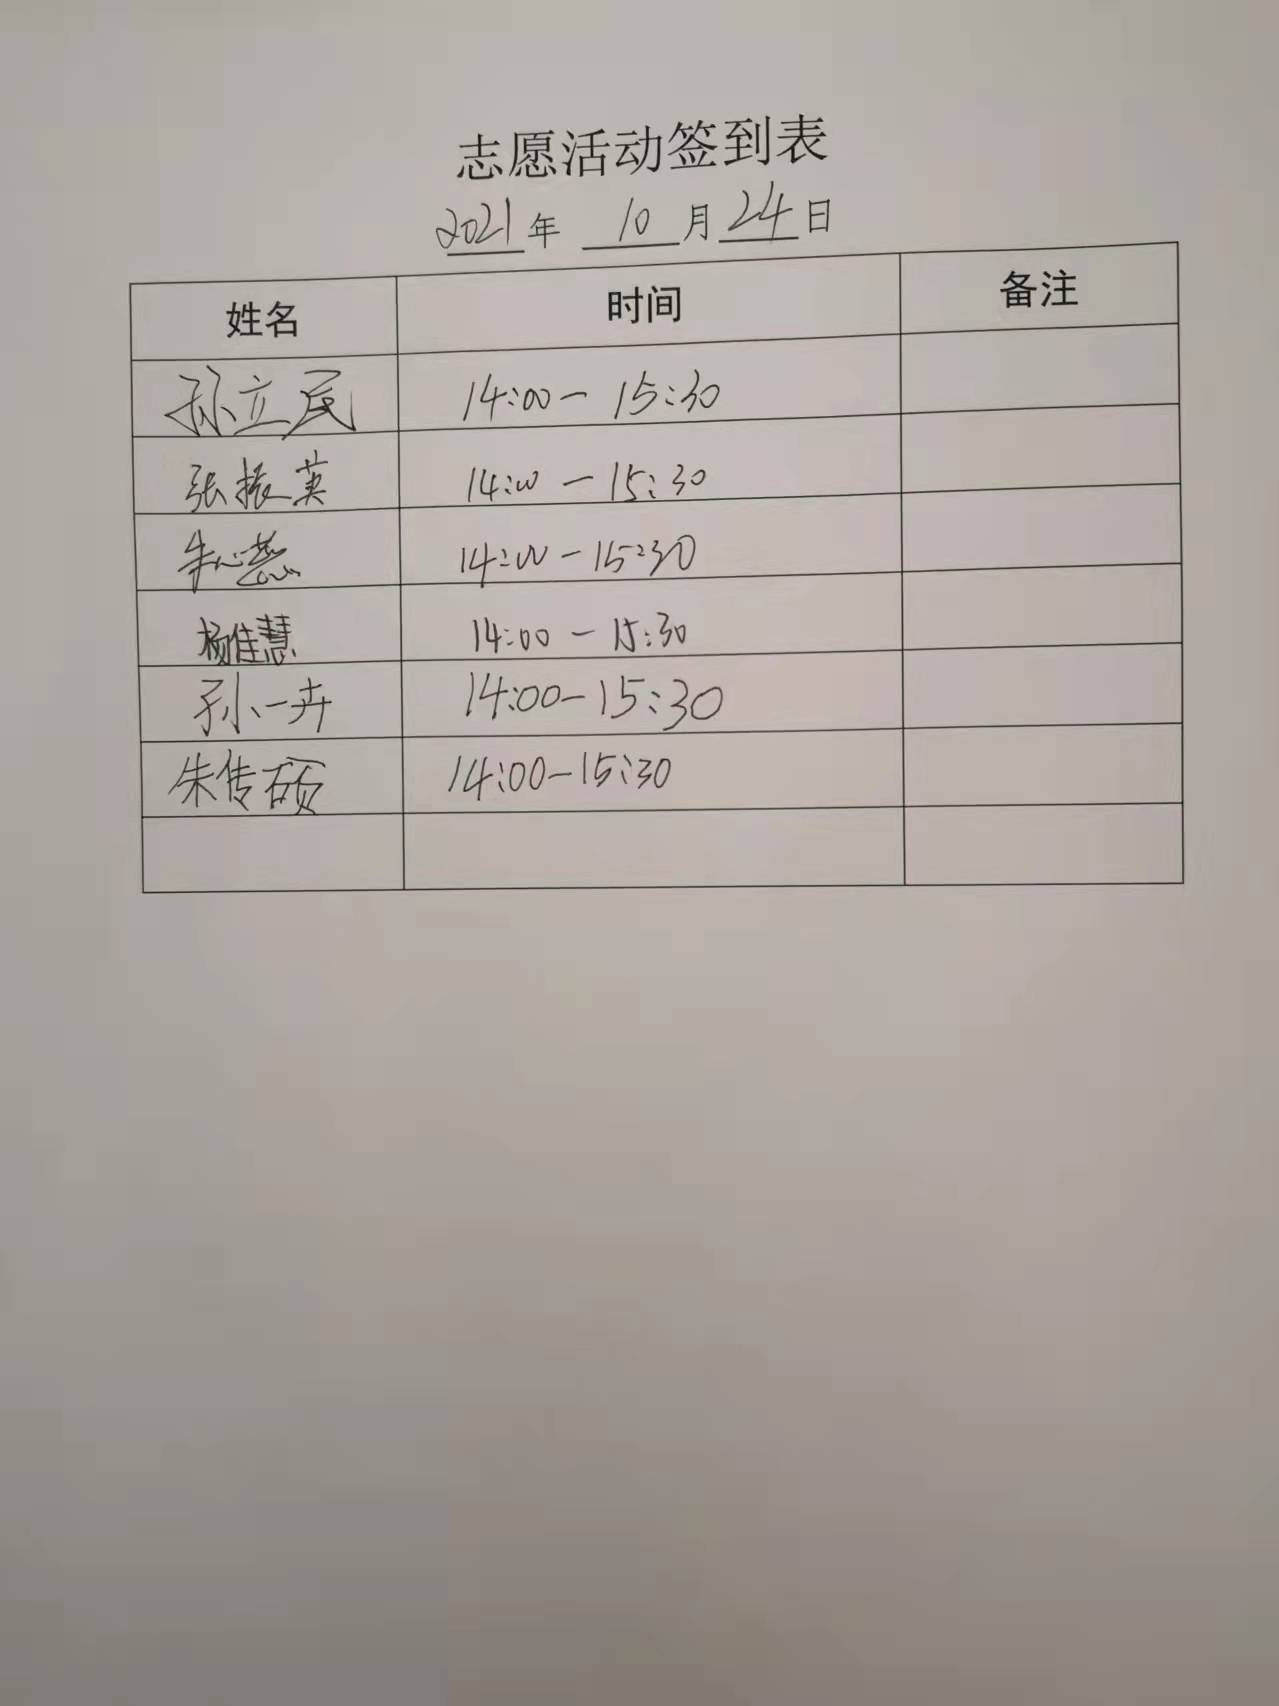 志愿活动签到表
2021年 10月24日
姓名 时间 备注
孙立民 14:00-15:30
张振英 14:00-15:30
朱心蕊 14:00-15:30
杨佳慧 14:00-15:30
孙一卉 14:00-15:30
朱传硕 14:00-15:30